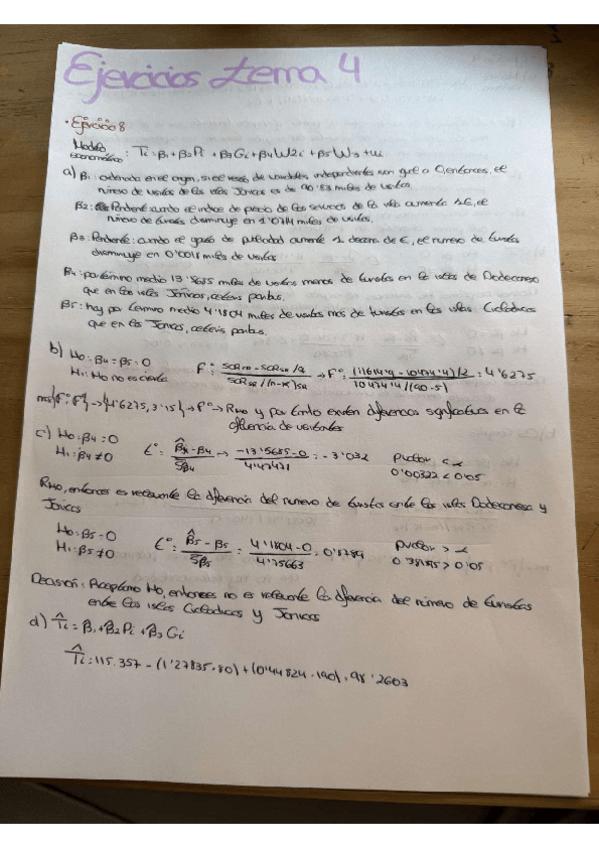 Ejercicios tema 4
• Ejercicio 8
Modelo econométrico: Ti = β1 + β2Pi + β3Gi + β4W2i + β5W3 + ui
a) β1: ordenada en el origen, si el resto de variables independientes son igual a 0, entonces, el
número de visitas de las islas Jónicas es de 90.83 miles de visitas.
β2: Pendiente cuando el índice de precio de los servicios de la isla aumenta 1€, el
número de turistas disminuye en 1'0714 miles de visitas.
β3: Pendiente: cuando el gasto de publicidad aumenta 1 decena de €, el numero de turistas
disminuye en miles de visitas
β4: por término medio 13'5685 miles de visitas menos de turistas en las islas de Dodecaneso
que en las islas Jónicas, ceteris paribus.
β5: hay por término medio 4'1804 miles de visitas mas de turistas en las islas Cicládicas
que en las Jónicas, ceteris paribus.
b) Ho: β4 = β5 = 0
H1: Ho no es cierta
F° = SCRHo - SCRSR /q / SCRSR /(n-k)SR → F° = (11614'9 - 10474'4)/2 / 10474'4/(90-5) = 4'6275
{F°, F*} → {4'6275, 3'15} → F° → RHo y por tanto existen diferencias significativas en la
afluencia de visitantes
c) Ho: β4 = 0
H1: β4 ≠ 0
t° = β̂4 - β4 / Sβ4 = -13'5685 - 0 / 4'47471 = -3'032
pvalor < α
0'00322 < 0'05
RHo, entonces es relevante la diferencia del numero de turistas entre las islas Dodecaneso y
Jónicas
Ho: β5 = 0
H1: β5 ≠ 0
t° = β̂5 - β5 / Sβ5 = 4'1804 - 0 / 4'75663 = 0'8789
pvalor > α
> 0'05
Decisión: Aceptamo Ho, entonces no es relevante la diferencia del número de turistas
entre las islas Cicládicas y Jónicas
d) T̂i = β1 + β2Pi + β3Gi
T̂i = 115.357 - (1'27835·80) + (0'44824·190) = 98'2603